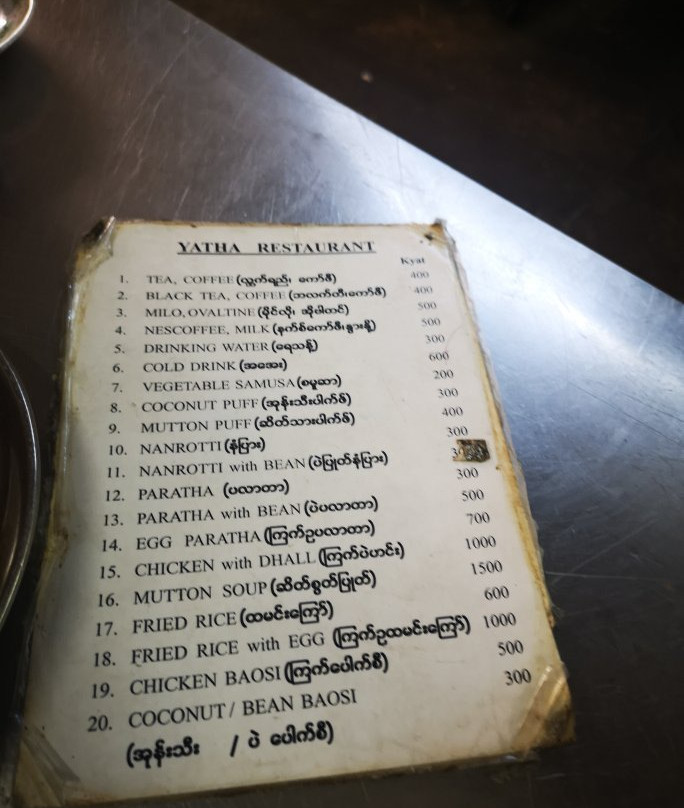 YATHA RESTAURANT
Kyat
1. TEA, COFFEE (လ္ဘက်ရည်၊ ကော်ဖီ) 400
2. BLACK TEA, COFFEE (ဘလက်တီး၊ကော်ဖီ) 400
3. MILO, OVALTINE (မိုင်လို၊ အိုဗါတင်) 500
4. NESCOFFEE, MILK (နက်စ်ကော်ဖီ၊နွားနို့) 500
5. DRINKING WATER (ရေသန့်) 300
6. COLD DRINK (အအေး) 600
7. VEGETABLE SAMUSA (စမူဆာ) 200
8. COCONUT PUFF (အုန်းသီးပါက်ဖ်) 300
9. MUTTON PUFF (ဆိတ်သားပါက်ဖ်) 400
10. NANROTTI (နံပြား) 300
11. NANROTTI with BEAN (ပဲပြုတ်နံပြား)
12. PARATHA (ပလာတာ) 300
13. PARATHA with BEAN (ပဲပလာတာ) 500
14. EGG PARATHA (ကြက်ဥပလာတာ) 700
15. CHICKEN with DHALL (ကြက်ပဲဟင်း) 1000
16. MUTTON SOUP (ဆိတ်စွတ်ပြုတ်) 1500
17. FRIED RICE (ထမင်းကြော်) 600
18. FRIED RICE with EGG (ကြက်ဥထမင်းကြော်) 1000
19. CHICKEN BAOSI (ကြက်ပေါက်စီ) 500
20. COCONUT / BEAN BAOSI 300
(အုန်းသီး / ပဲ ပေါက်စီ)